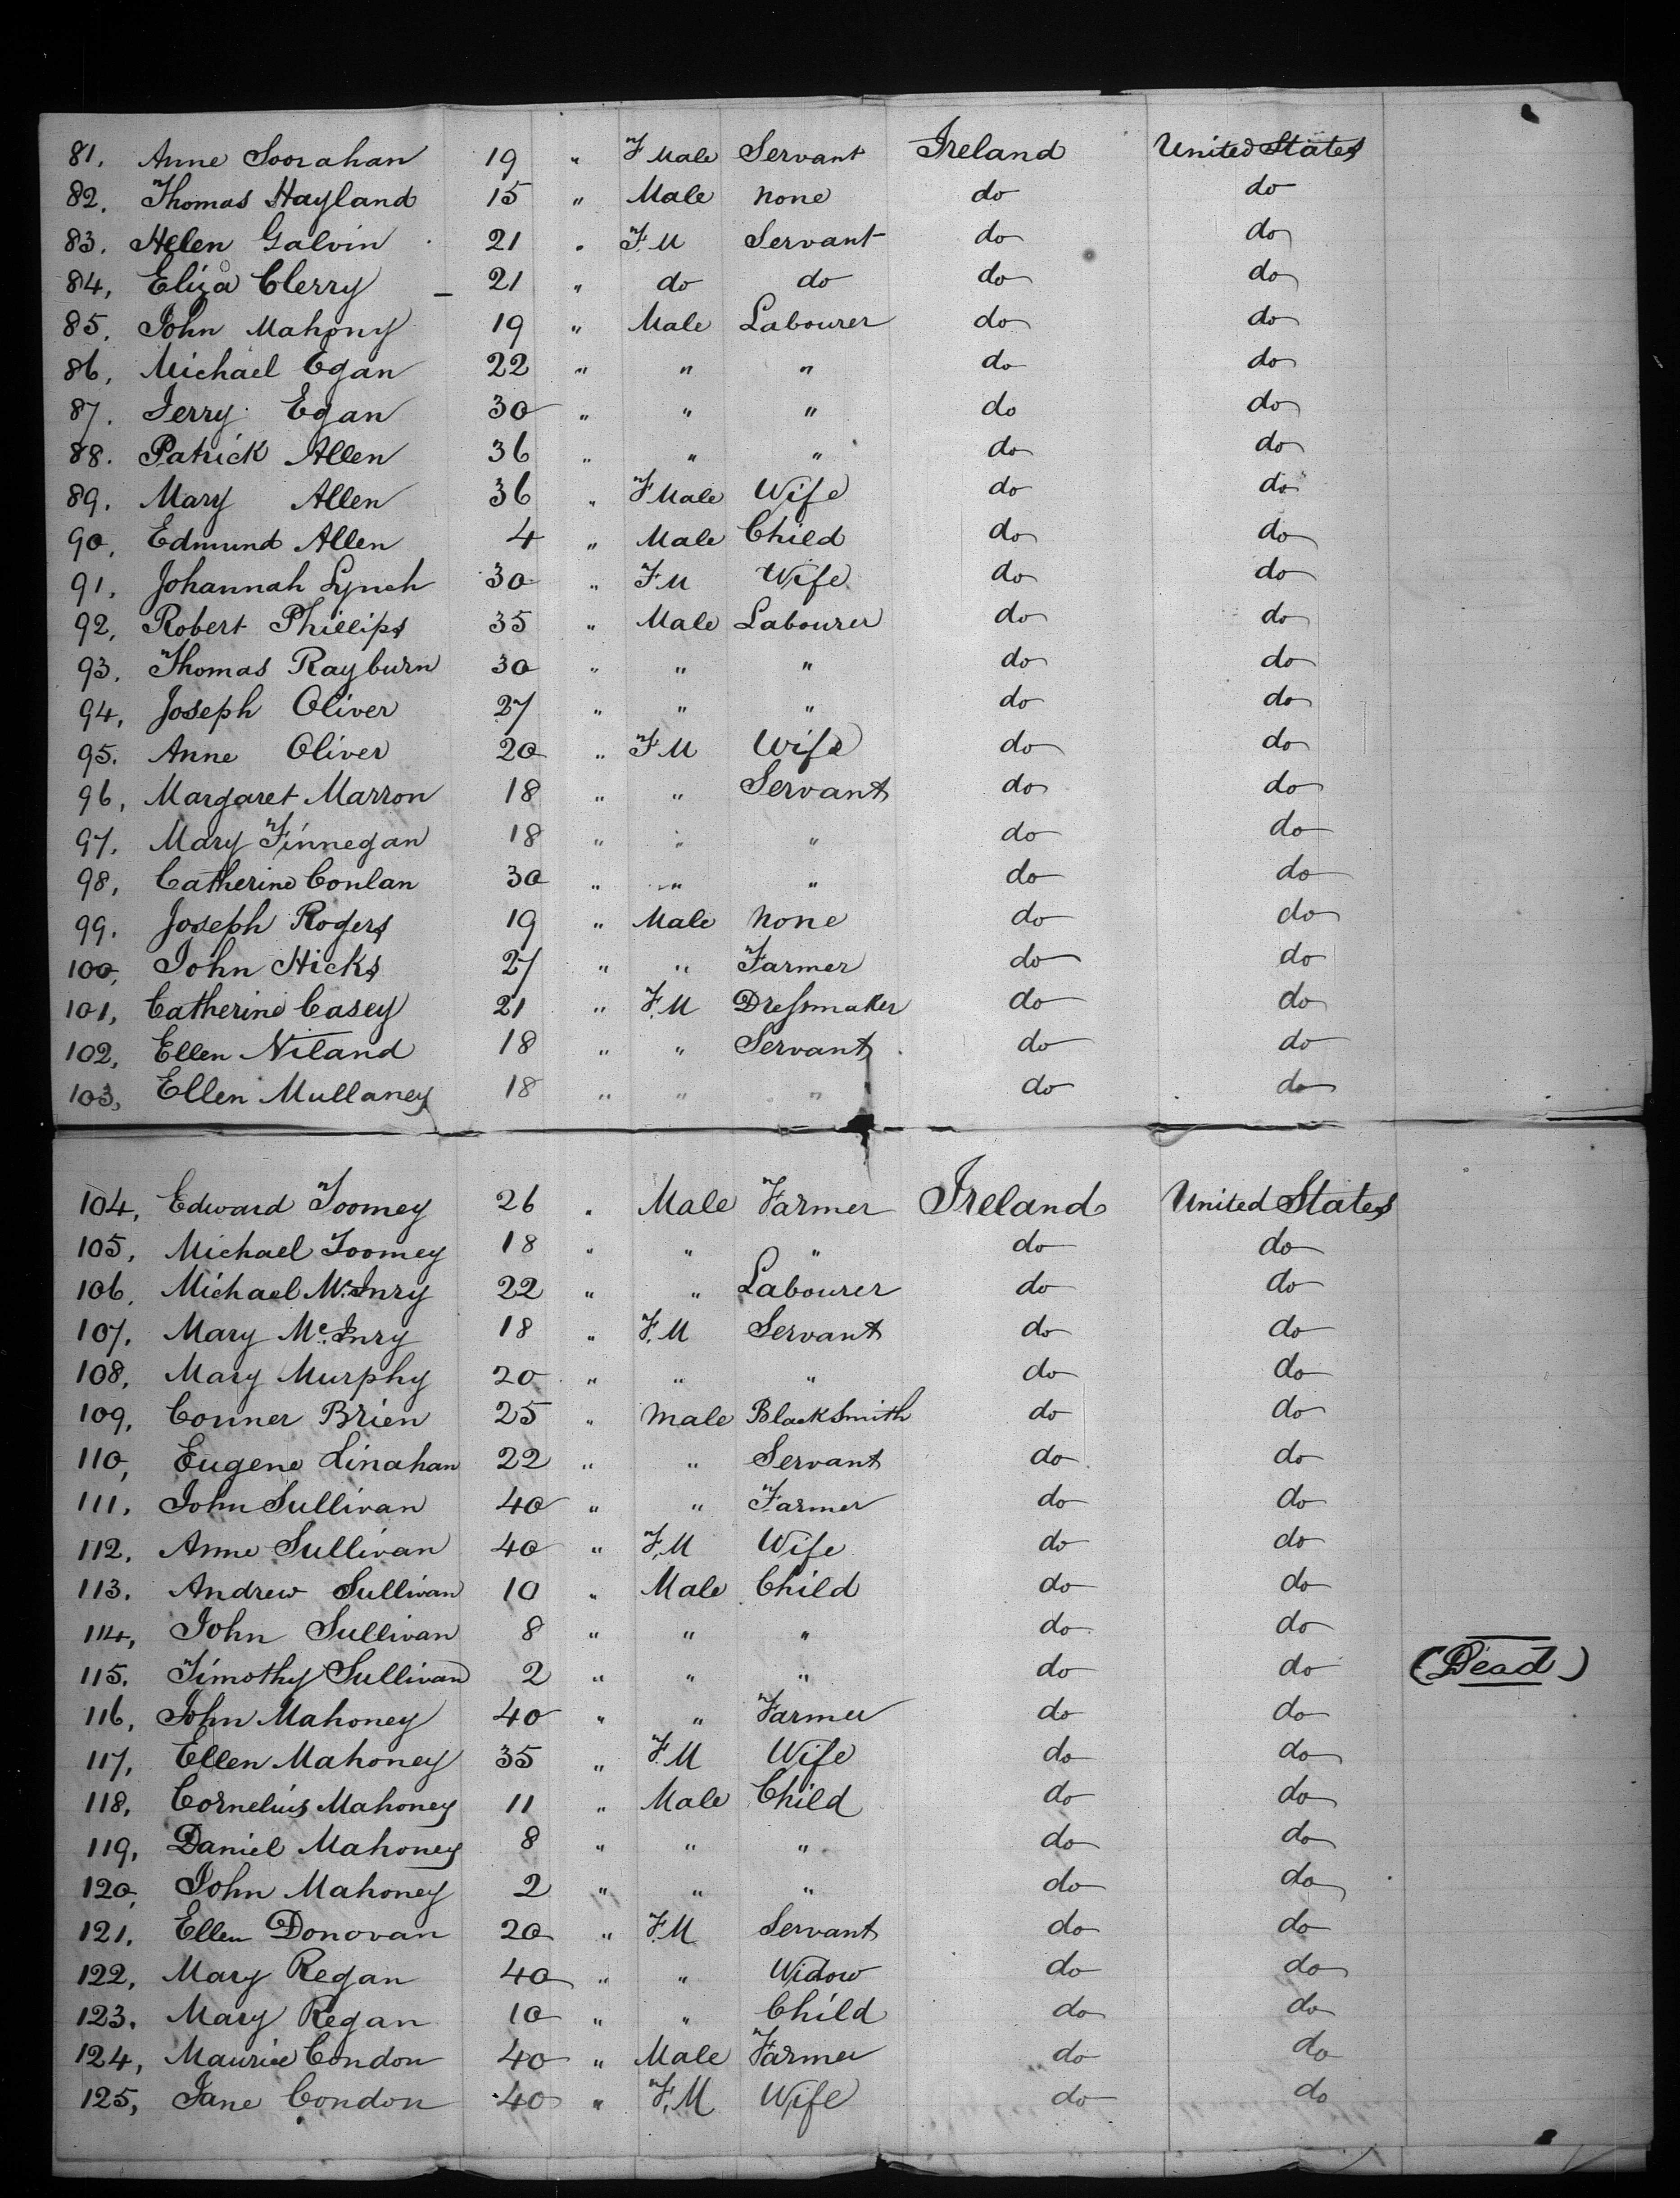 81. Anne Soorahan 19 " F Male Servant Ireland United States
82. Thomas Hayland 15 " Male none do do
83. Helen Galvin 21 " F.M Servant do do
84, Eliza Clerry 21 " do do do do
85. John Mahony 19 " Male Labourer do do
86, Michael Egan 22 " " " do do
87. Jerry Egan 30 " " " do do
88. Patrick Allen 36 " " " do do
89. Mary Allen 36 " F Male Wife do do
90, Edmund Allen 4 " Male Child do do
91, Johannah Lynch 30 " F.M Wife do do
92, Robert Phillips 35 " Male Labourer do do
93. Thomas Rayburn 30 " " " do do
94, Joseph Oliver 27 " " " do do
95. Anne Oliver 20 " F M Wife do do
96, Margaret Marron 18 " " Servant do do
97. Mary Finnegan 18 " " " do do
98, Catherine Conlan 30 " " " do do
99. Joseph Rogers 19 " Male none do do
100, John Hicks 27 " " Farmer do do
101, Catherine Casey 21 " F.M Dressmaker do do
102, Ellen Niland 18 " " Servant do do
103, Ellen Mullaney 18 " " " do do
104, Edward Toomey 26 " Male Farmer Ireland United States
105, Michael Toomey 18 " " " do do
106, Michael McInry 22 " " Labourer do do
107. Mary McInry 18 " F.M Servant do do
108, Mary Murphy 20 " " " do do
109, Conner Brien 25 " male BlackSmith do do
110, Eugene Linahan 22 " " Servant do do
111, John Sullivan 40 " " Farmer do do
112. Anne Sullivan 40 " F.M Wife do do
113. Andrew Sullivan 10 " Male Child do do
114, John Sullivan 8 " " " do do
115. Timothy Sullivan 2 " " " do do (Dead)
116, John Mahoney 40 " " Farmer do do
117, Ellen Mahoney 35 " F.M Wife do do
118, Cornelius Mahoney 11 " Male Child do do
119, Daniel Mahoney 8 " " " do do
120, John Mahoney 2 " " " do do
121. Ellen Donovan 20 " F.M Servant do do
122, Mary Regan 40 " " Widow do do
123. Mary Regan 10 " " Child do do
124, Maurice Condon 40 " Male Farmer do do
125, Jane Condon 40 " F.M Wife do do